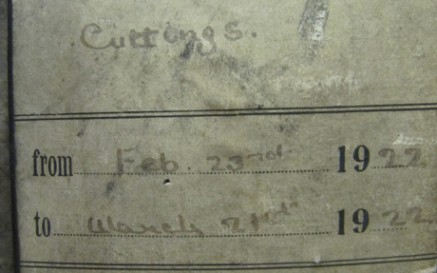 Cuttings.
from Feb. 23rd 1922
to March 2nd 1922